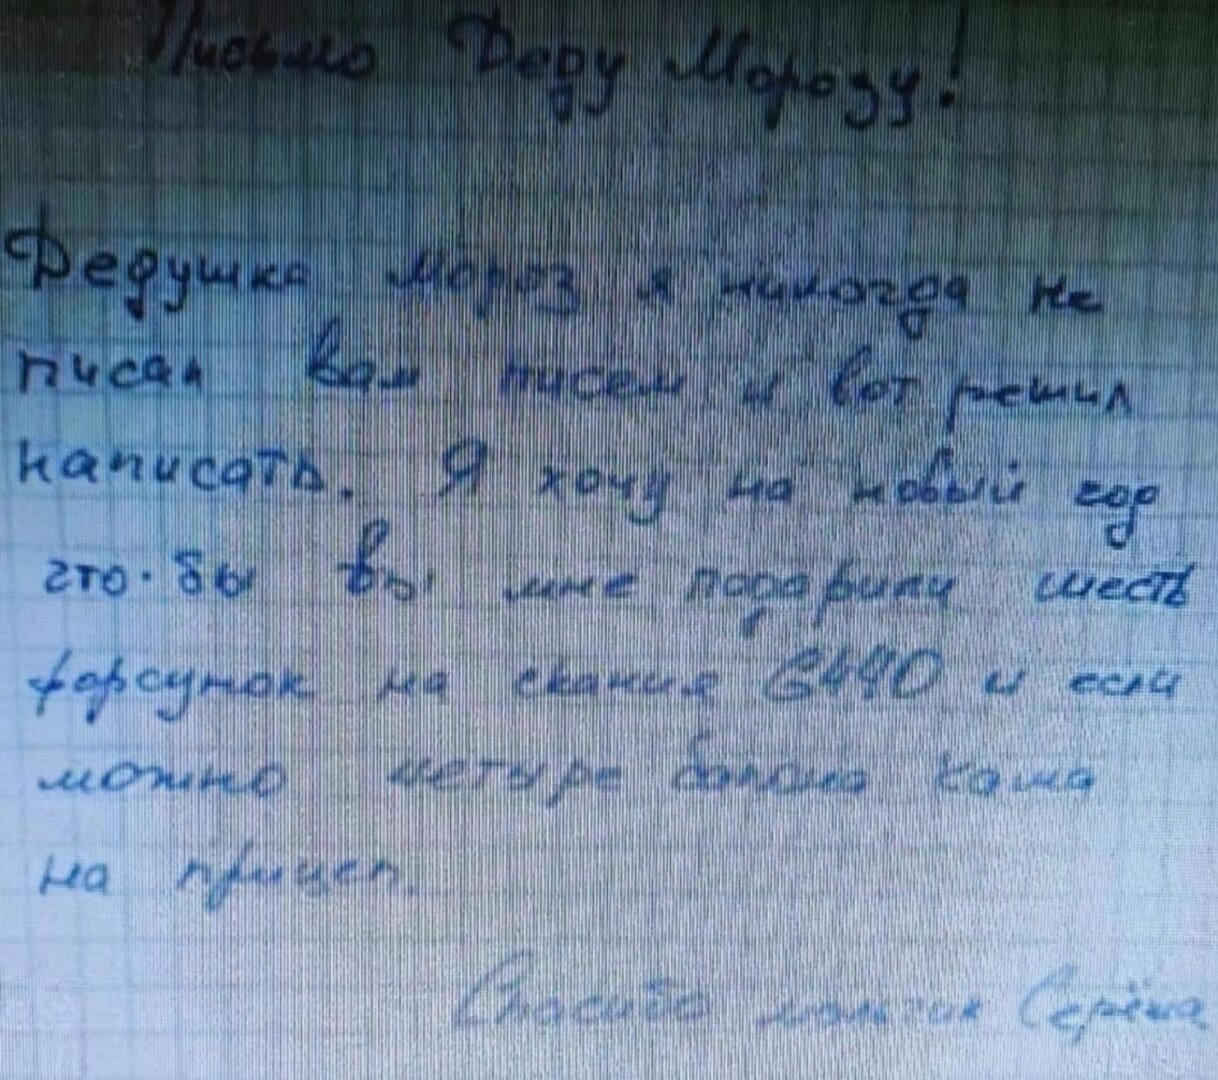 Письмо Деду Морозу!
Дедушка мороз я никогда не
писал вам писем и вот решил
написать. Я хочу на новый год
что-бы вы мне подарили шесть
форсунок на скания G440 и если
можно четыре балона кама
на прицеп.
Спасибо мальчик Серёжа